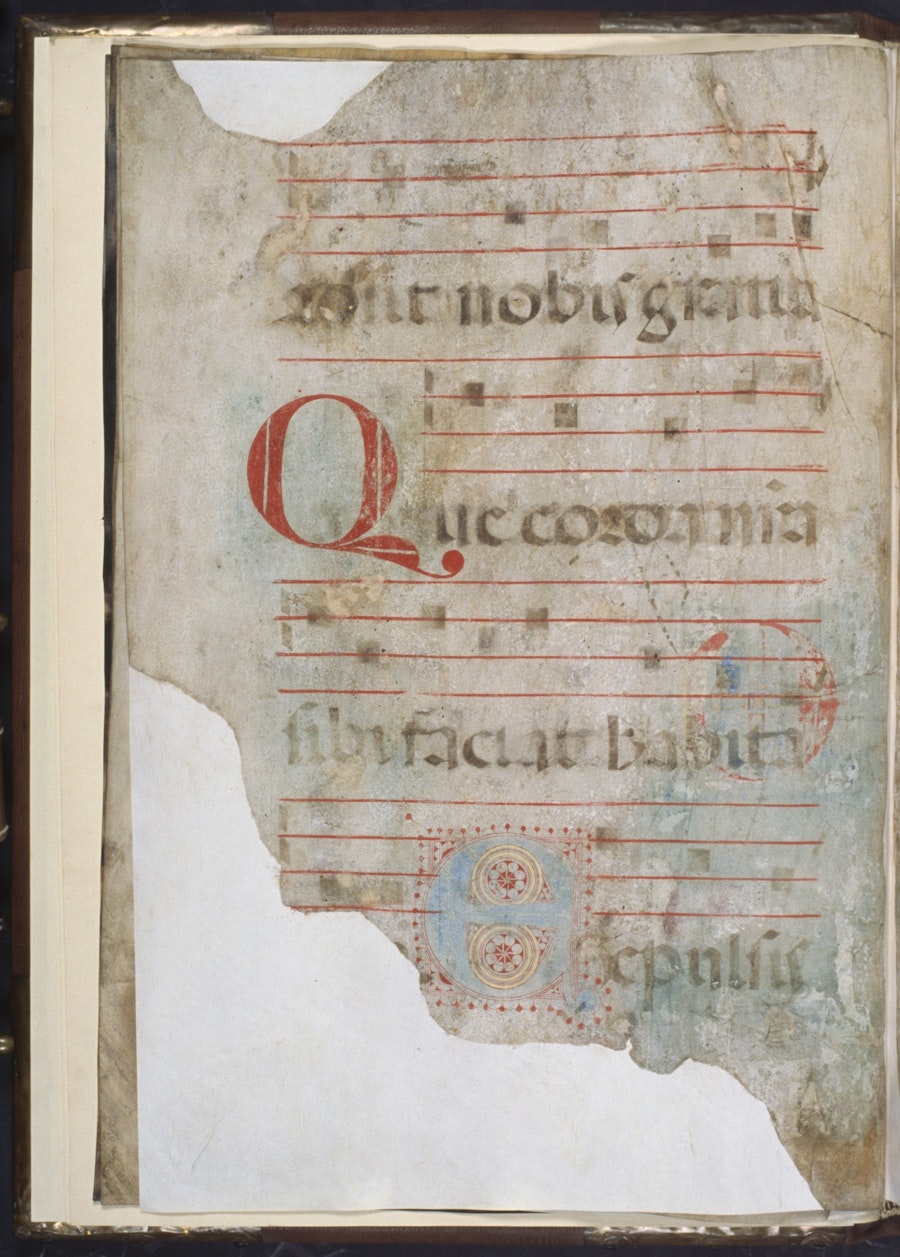 adsit nobis gratia
Que corda nr̃a
sibi faciat habita
Expulsis